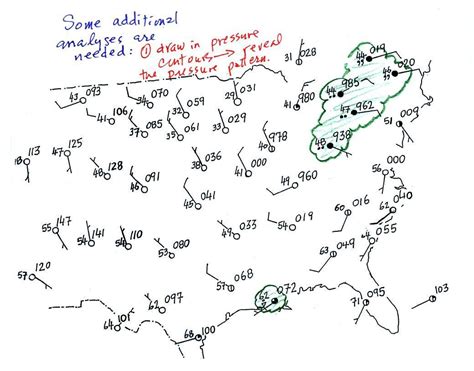 Some additional
analyses are
needed: ① draw in pressure
contours → reveal
the pressure pattern.
31 028
44 019
46 020
43 093
34 070
32 059
29 031
41 980
44 985
47 962
41 106
37 085
35 061
33 029
51 009
48 938
18 113
47 125
40 978
38 036
41 000
56 000
48 128
46 091
49 960
45 041
62 040
55 147
54 141
54 110
49 033
54 019
60 016
64 055
53 080
63 049
57 120
57 068
62 072
62 097
71 095
103
64 101
68 100